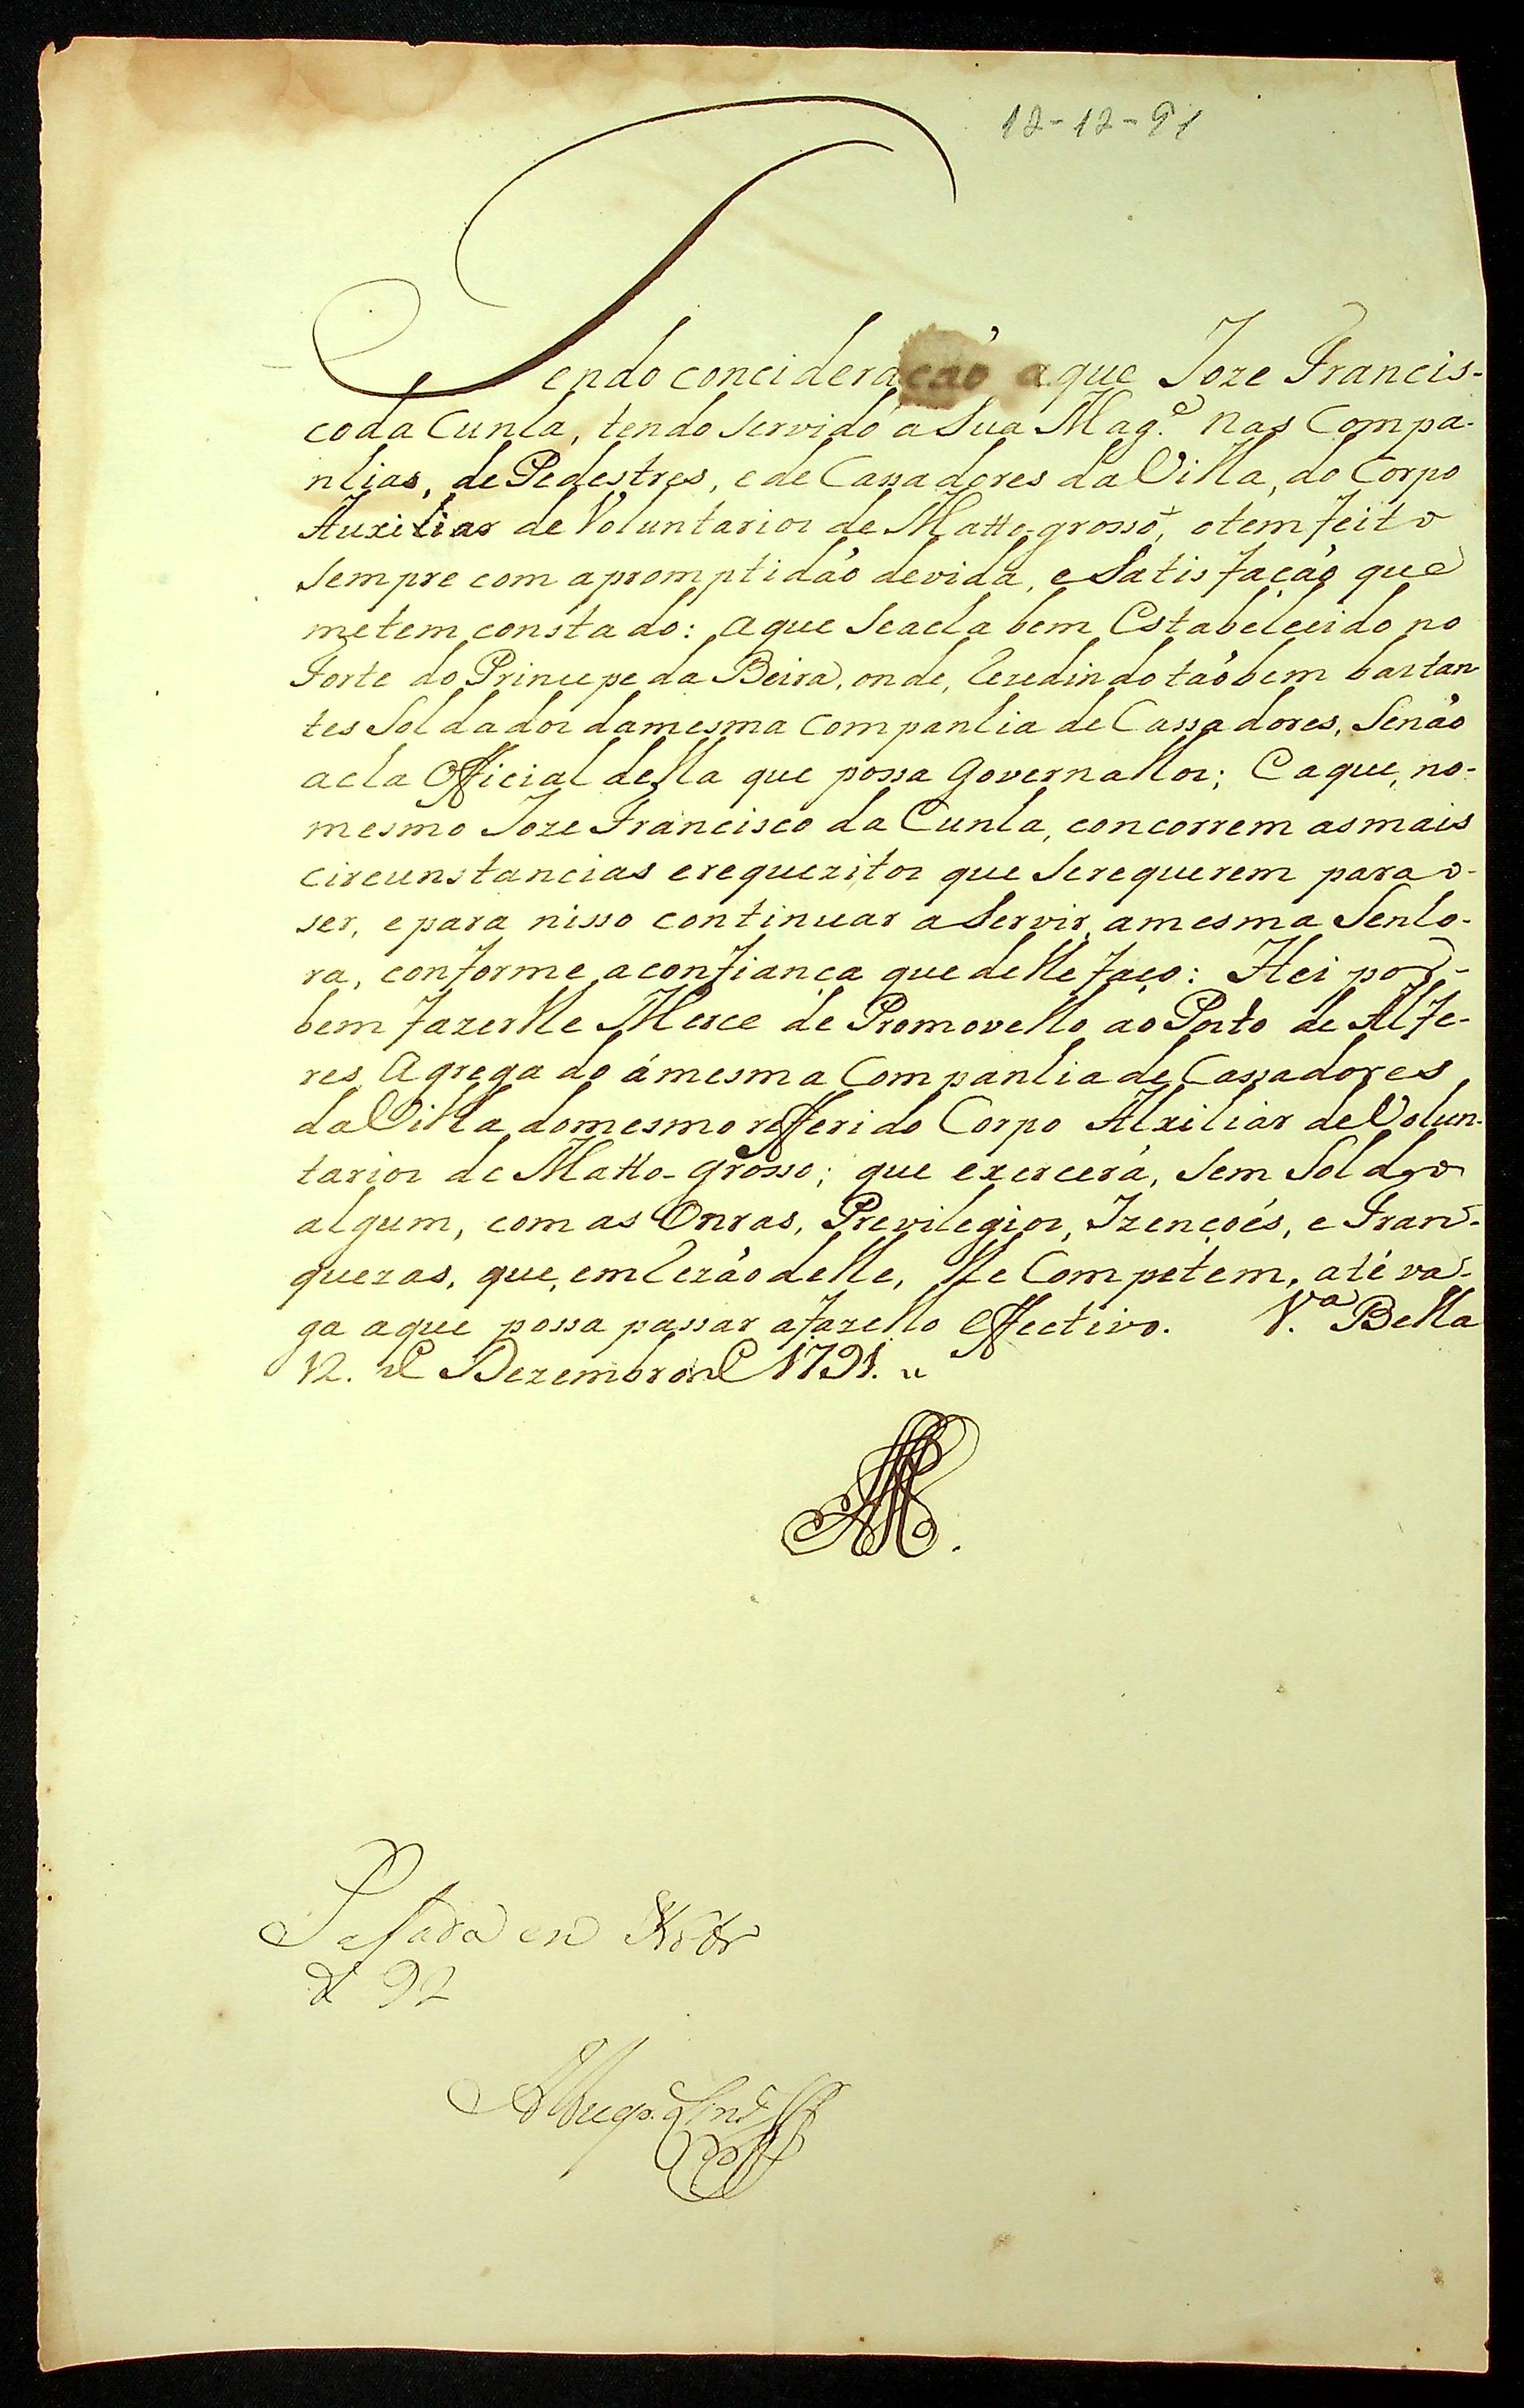 12-12-91
Tendo concideração aque Joze Francis-
co da Cunha, tendo servido a Sua Mag.e nas Compa-
nhias, de Pedestres, e de Cassadores da Villa, do Corpo
Auxiliar de Voluntarios de Matto-grosso, otem feito
sempre com a promptidaõ devida, e Satisfaçaõ que
metem constado: aque Seacha bem Estabelecido no
Forte do Principe da Beira, onde, rezedindo taõbem bastan
tes Soldados damesma Companhia de Cassadores, Senaõ
acha Official della que possa Governallos; E aque, no-
mesmo Joze Francisco da Cunha, concorrem asmais
circunstancias erequezitos que Serequerem para o-
ser, e para nisso continuar a Servir, amesma Senho-
ra, conforme aconfiança que delle faço: Hei por-
bem fazerlhe Merce de Promovello ao Posto de Alfe-
res Agregado ámesma Companhia de Cassadores
da Villa domesmo refferido Corpo Auxiliar de Volun-
tarios de Matto-grosso; que exercerá, Sem Soldo
algum, com as Onras, Previlegios, Izençoẽs, e Fran-
quezas, que, emrezaõ delle, lhe Competem, até va-
ga aque possa passar afazello effectivo. V.a Bella
12. de Dezembro de 1791.
Passada em
de 92